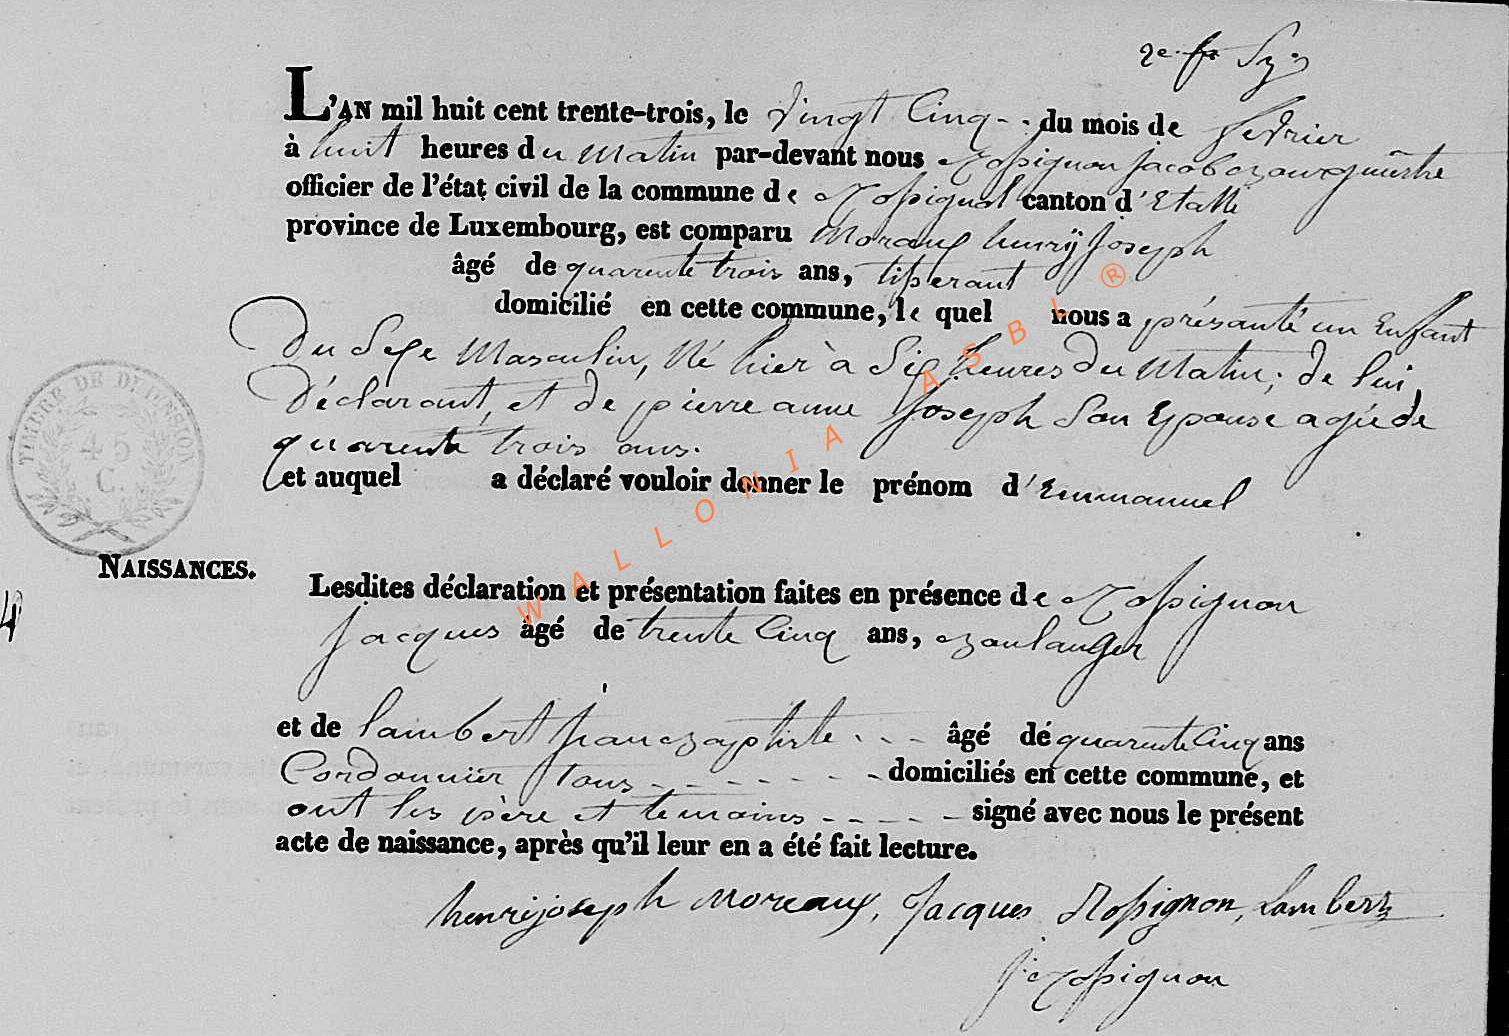 L'AN mil huit cent trente-trois, le vingt Cinq - - du mois de fevrier
à huit heures du Matin par-devant nous Rossignon Jacob
officier de l'état civil de la commune de Rossignol canton d'Etalle
province de Luxembourg, est comparu Moraux henrÿ Joseph
âgé de quarente trois ans, tisserant
domicilié en cette commune, le quel nous a présanté un Enfant
Du Sexe Masculin, Né hier à Six heures du Matin; de lui
Déclarant, et de pierre anne Joseph Son Epouse agée de
quarente trois ans.
et auquel a déclaré vouloir donner le prénom d'Emmanuel
TIMBRE DE DIMENSION
45
C.
NAISSANCES.
4
Lesdites déclaration et présentation faites en présence de Rossignon
Jacques âgé de trente Cinq ans, Boulanger
et de lambert jean Baptiste - - - âgé dé quarente Cinq ans
Cordonnier tous - - - - - - - domiciliés en cette commune, et
ont les père et temoins - - - - - signé avec nous le présent
acte de naissance, après qu'il leur en a été fait lecture.
henri joseph Moreaux, Jacques Rossignon, Lambert
J: Rossignon
WALLONIA ASBL ®